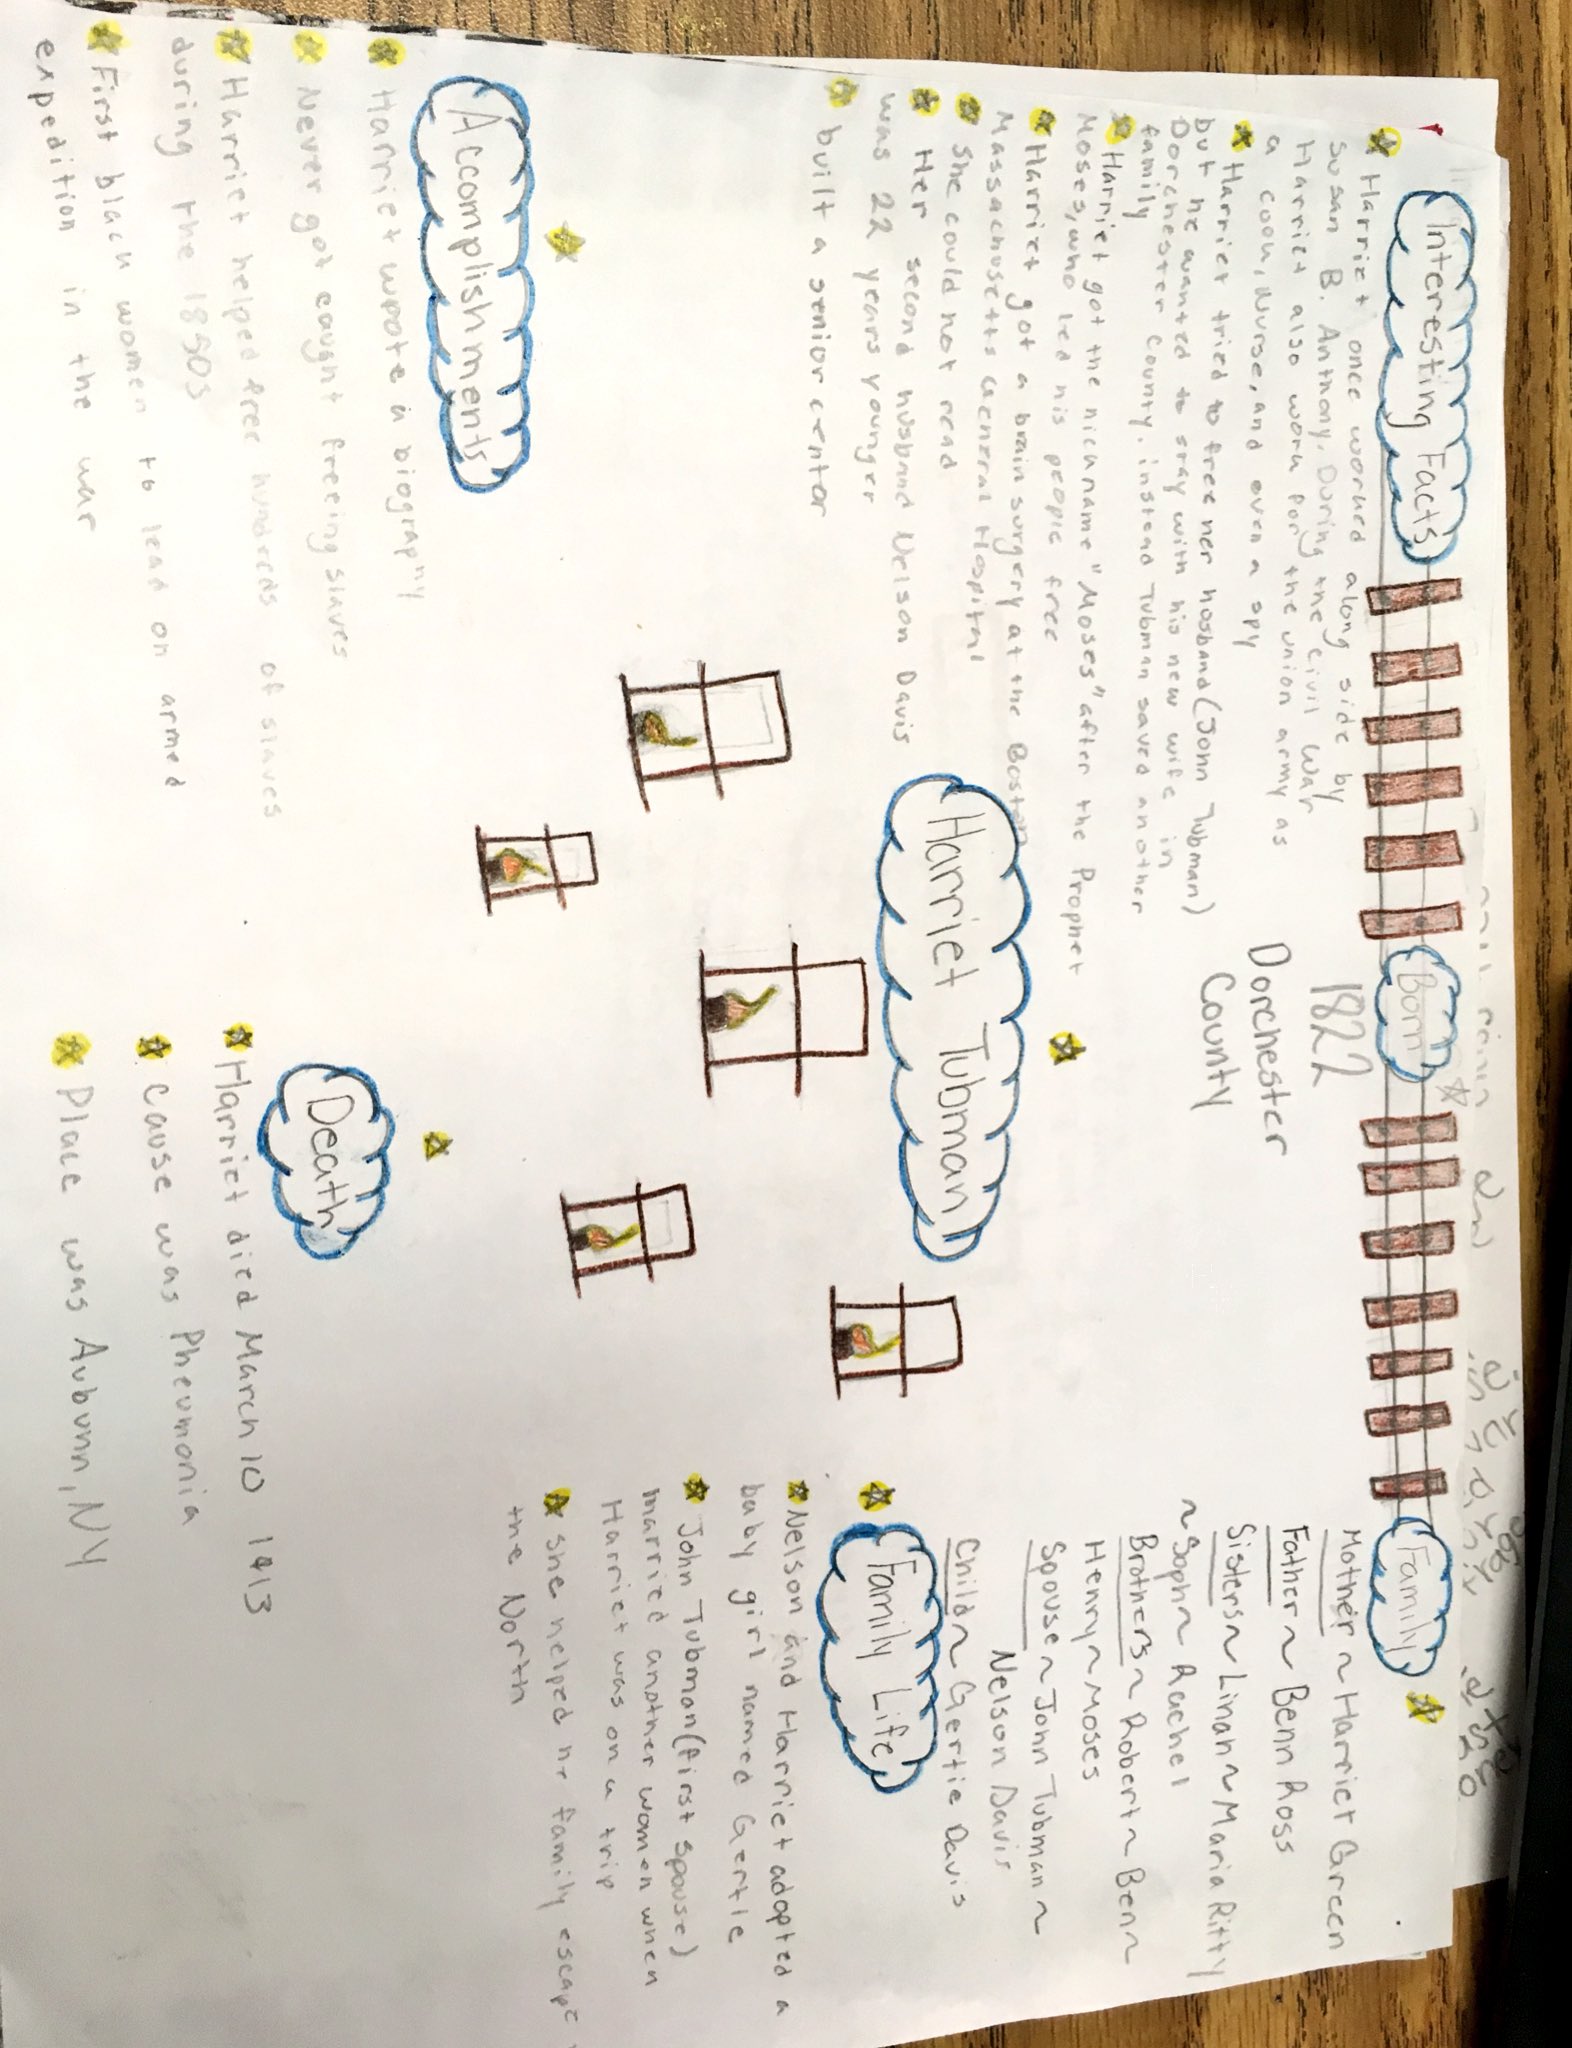 Interesting Facts
Harriet once worked along side by
Susan B. Anthony. During the civil war
Harriet also work for the union army as
a coou, Nurse, and even a spy
Harriet tried to free her hosband (John Tubman)
but he wanted to stay with his new wife in
Dorchester County. instead Tubman saved another
family
Harriet got the nicuname "Moses" after the Prophet
Moses, who led his people free
Harriet got a brain surgery at the Boston
Massachusetts General Hospital
She could not read
Her second husband Nelson Davis
was 22 years younger
built a senior centor
Born
1822
Dorchester
County
Family
Mother ~ Harriet Green
Father ~ Benn Ross
Sisters ~ Linah ~ Maria Ritty
~ Soph ~ Rachel
Brothers ~ Robert ~ Ben ~
Henry ~ Moses
Spouse ~ John Tubman ~
Nelson Davis
Child ~ Gertie Davis
Harriet Tubman
Family Life
Nelson and Harriet adopted a
baby girl named Gertie
John Tubman (first spouse)
married another women when
Harriet was on a trip
She helped he family escape
the North
Accomplishments
Harriet wrote a biography
Never got caught freeing slaves
Harriet helped free hundreds of slaves
during the 1850s
First black women to lead on armed
expedition in the war
Death
Harriet died March 10 1913
Cause was Pheumonia
Place was Auburn, NY